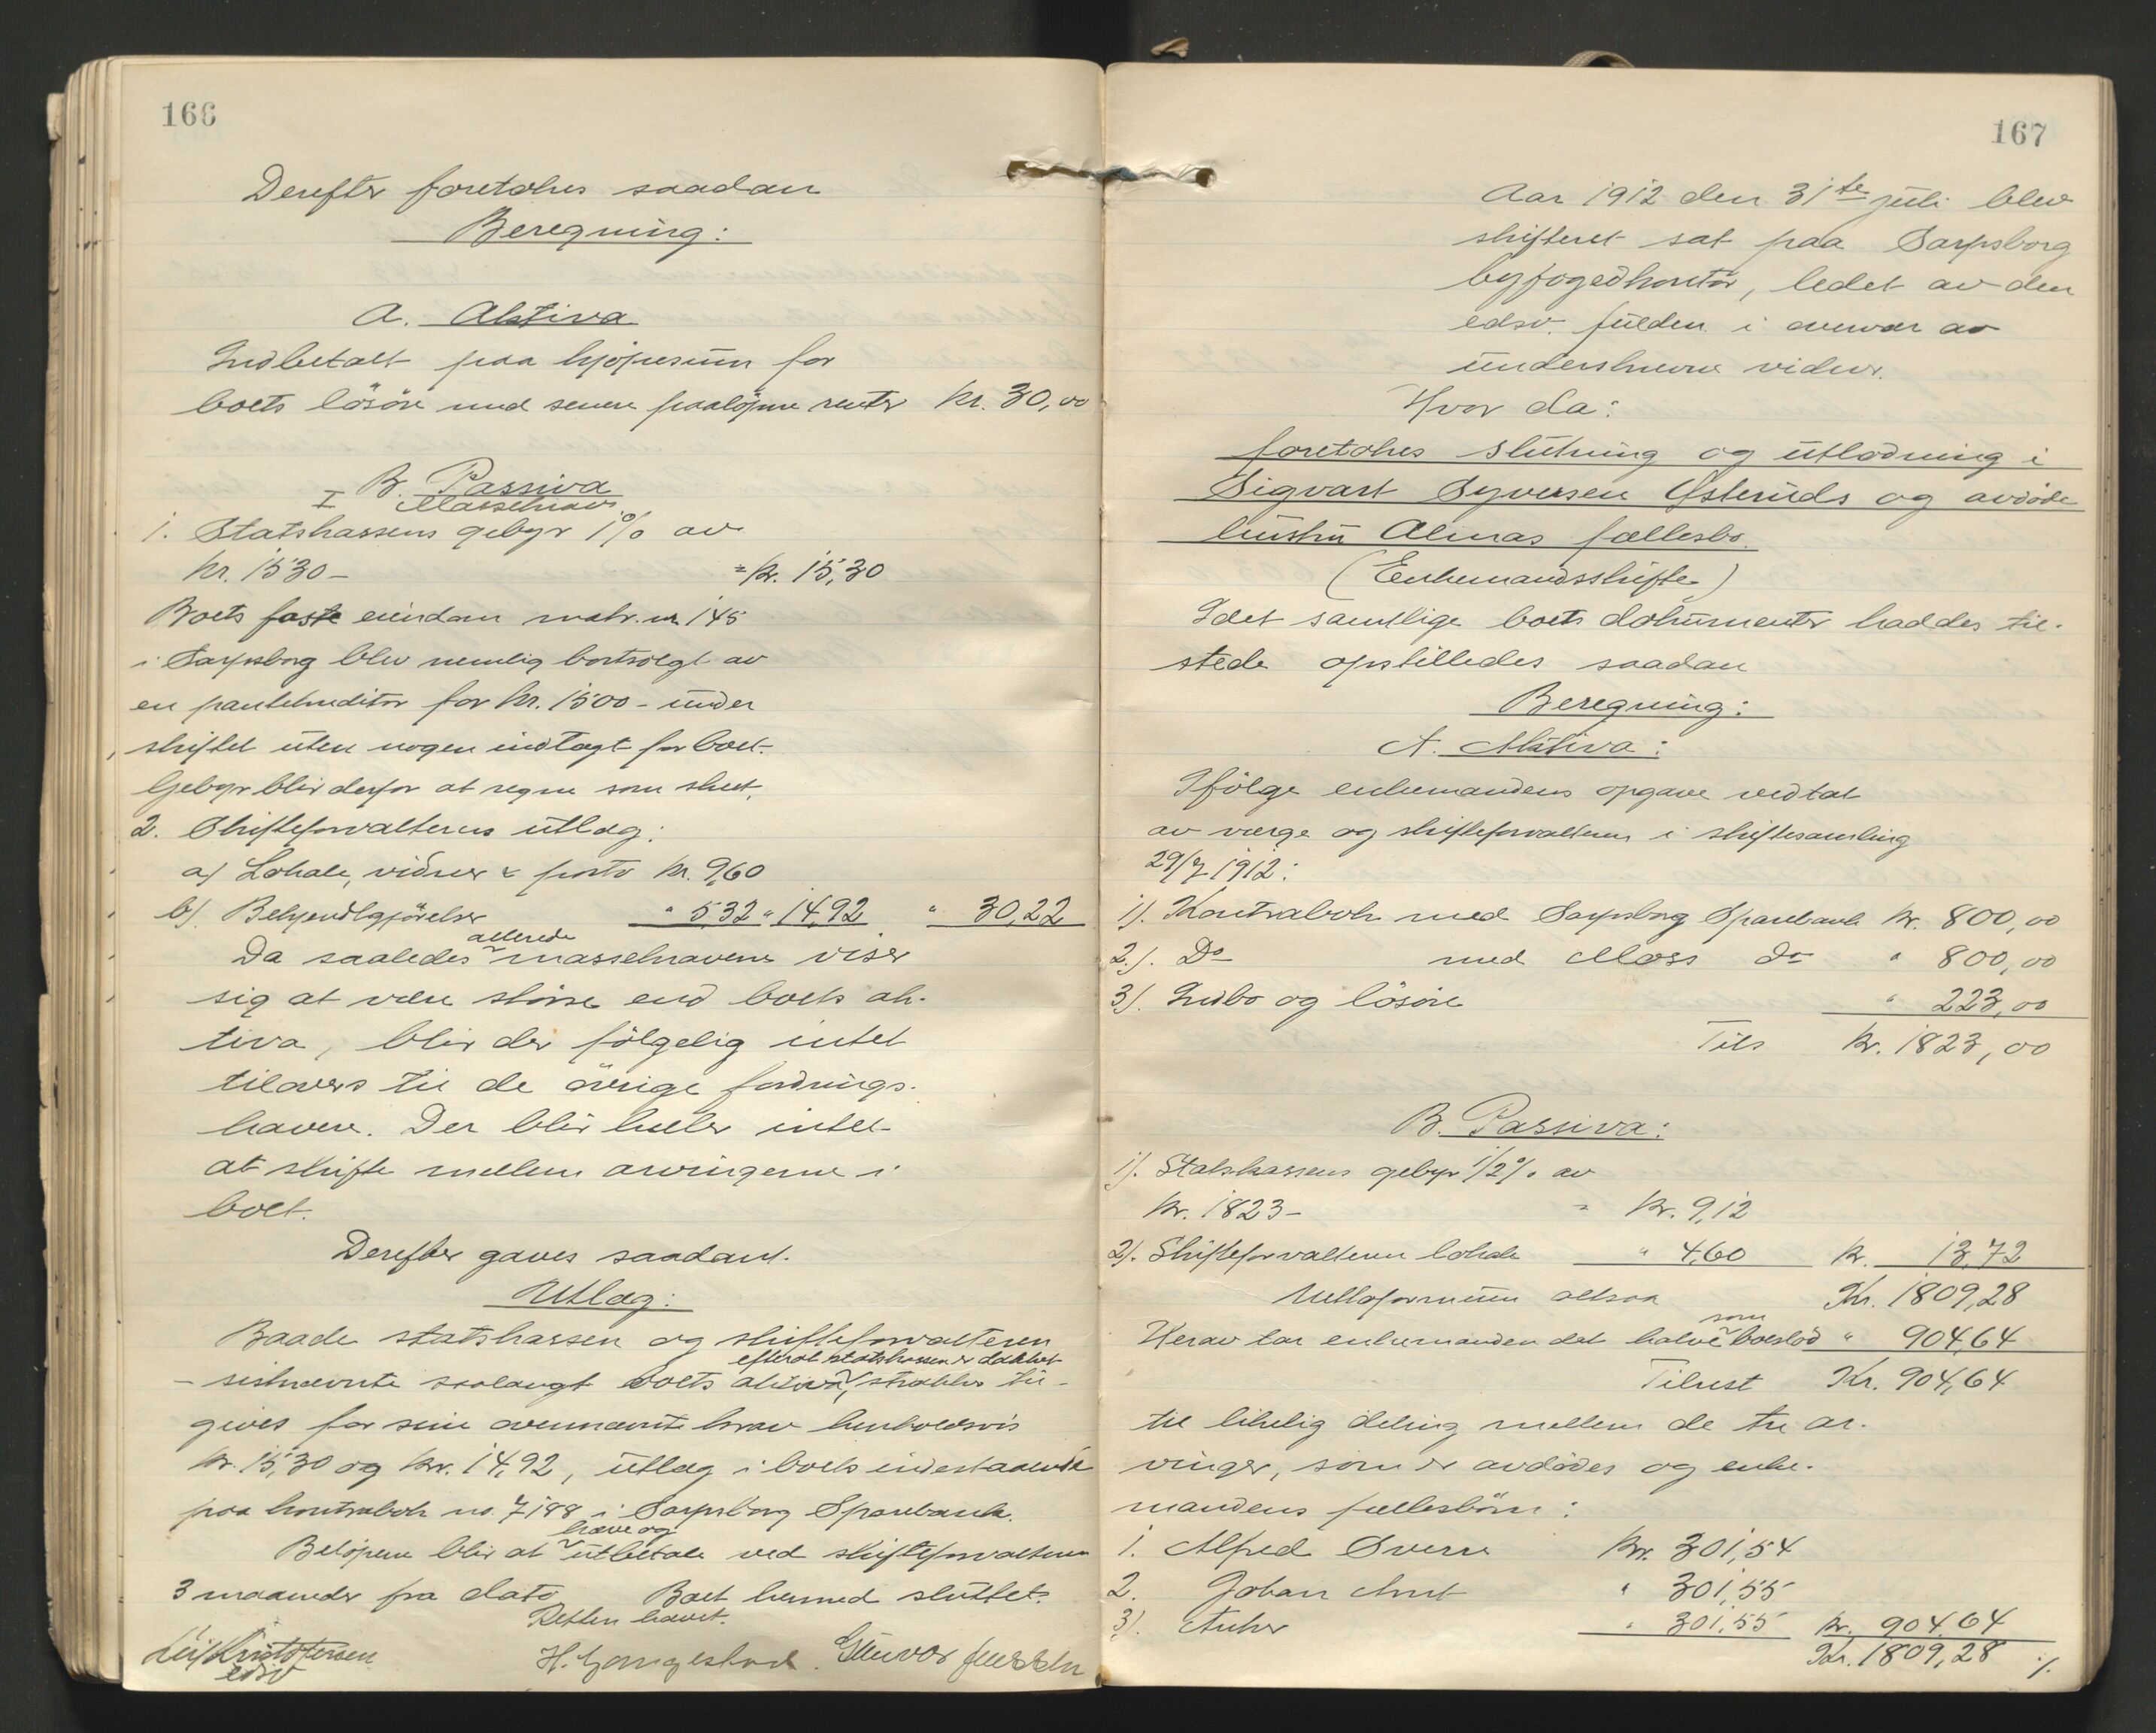 166
Derefter foretokes saadan
Beregning:
A. Aktiva
Indbetalt paa kjøpesum for
boets lösöre med senere paalöpne renter kr. 30,00
B. Passiva
I Massekrav.
1. Statskassens gebyr 1% av
kr. 1530- = kr. 15,30
Boets faste eiendom matr. nr. 145
i Sarpsborg blev nemlig bortsolgt av
en pantekreditor for kr. 1500- under
skiftet uten nogen indtægt for boet.
Gebyr blir derfor at regne som skeet.
2. Skifteforvalterens utlæg:
a) Lokale, vidner & porto kr. 9,60
b). Bekjendtgjörelser " 5,32 " 14,92 " 30,22
Da saaledes allerede massekravene viser
sig at være större end boets ak-
tiva, blir der fölgelig intet
tilovers til de övrige fordrings-
havere. Der blir heller intet
at skifte mellem arvingerne i
boet.
Derefter gaves saadant
Utlæg:
Baade statskassen og skifteforvalteren
- sistnævnte saalangt boets aktiva, efterat statskassen er dækket strækker til -
gives for sine ovennævnte krav henholdsvis
kr. 15,30 og kr. 14,92, utlæg i boets indestaaende
paa kontrabok no. 7188 i Sarpsborg Sparebank.
Belöpene blir at hæve og utbetale ved skifteforvalteren
3 maaneder fra dato. Boet hermed sluttet.
Retten hævet.
Leif Kristofersen
edsv
H. Gangestad. Gunvor
167
Aar 1912 den 31te juli blev
skifteret sat paa Sarpsborg
byfogedkontor, ledet av den
edsv. fuldm. i overvær av
underskrevne vidner.
Hvor da:
foretokes Slutning og utlodning i
Sigvart Syversen Østeruds og avdöde
hustru Almas fællesbo.
(Enkemandsskifte)
Idet samtlige boets dokumenter haddes til-
stede opstilledes saadan
Beregning:
A. Aktiva:
Ifölge enkemandens opgave vedtat
av verge og skifteforvalteren i skiftesamling
29/7 1912:
1). Kontrabok med Sarpsborg Sparebank kr. 800,00
2.). Do med Moss do " 800,00
3). Indbo og lösöre " 223,00
Tils kr. 1823,00
B. Passiva:
1). Statskassens gebyr 1/2% av
kr. 1823- = kr. 9,12
2). Skifteforvalteren lokale " 4,60 kr. 13,72
Nettoformuen altsaa Kr. 1809,28
Herav tar enkemanden det halve som boeslod " 904,64
Tilrest Kr. 904,64
til likelig deling mellem de tre ar-
vinger, som er avdödes og enke-
mandens fællesbörn:
1. Alfred Sverre Kr. 301,54
2. Johan Arnt " 301,55
3). Anker " 301,55 kr. 904,64
Kr. 1809,28 ./.